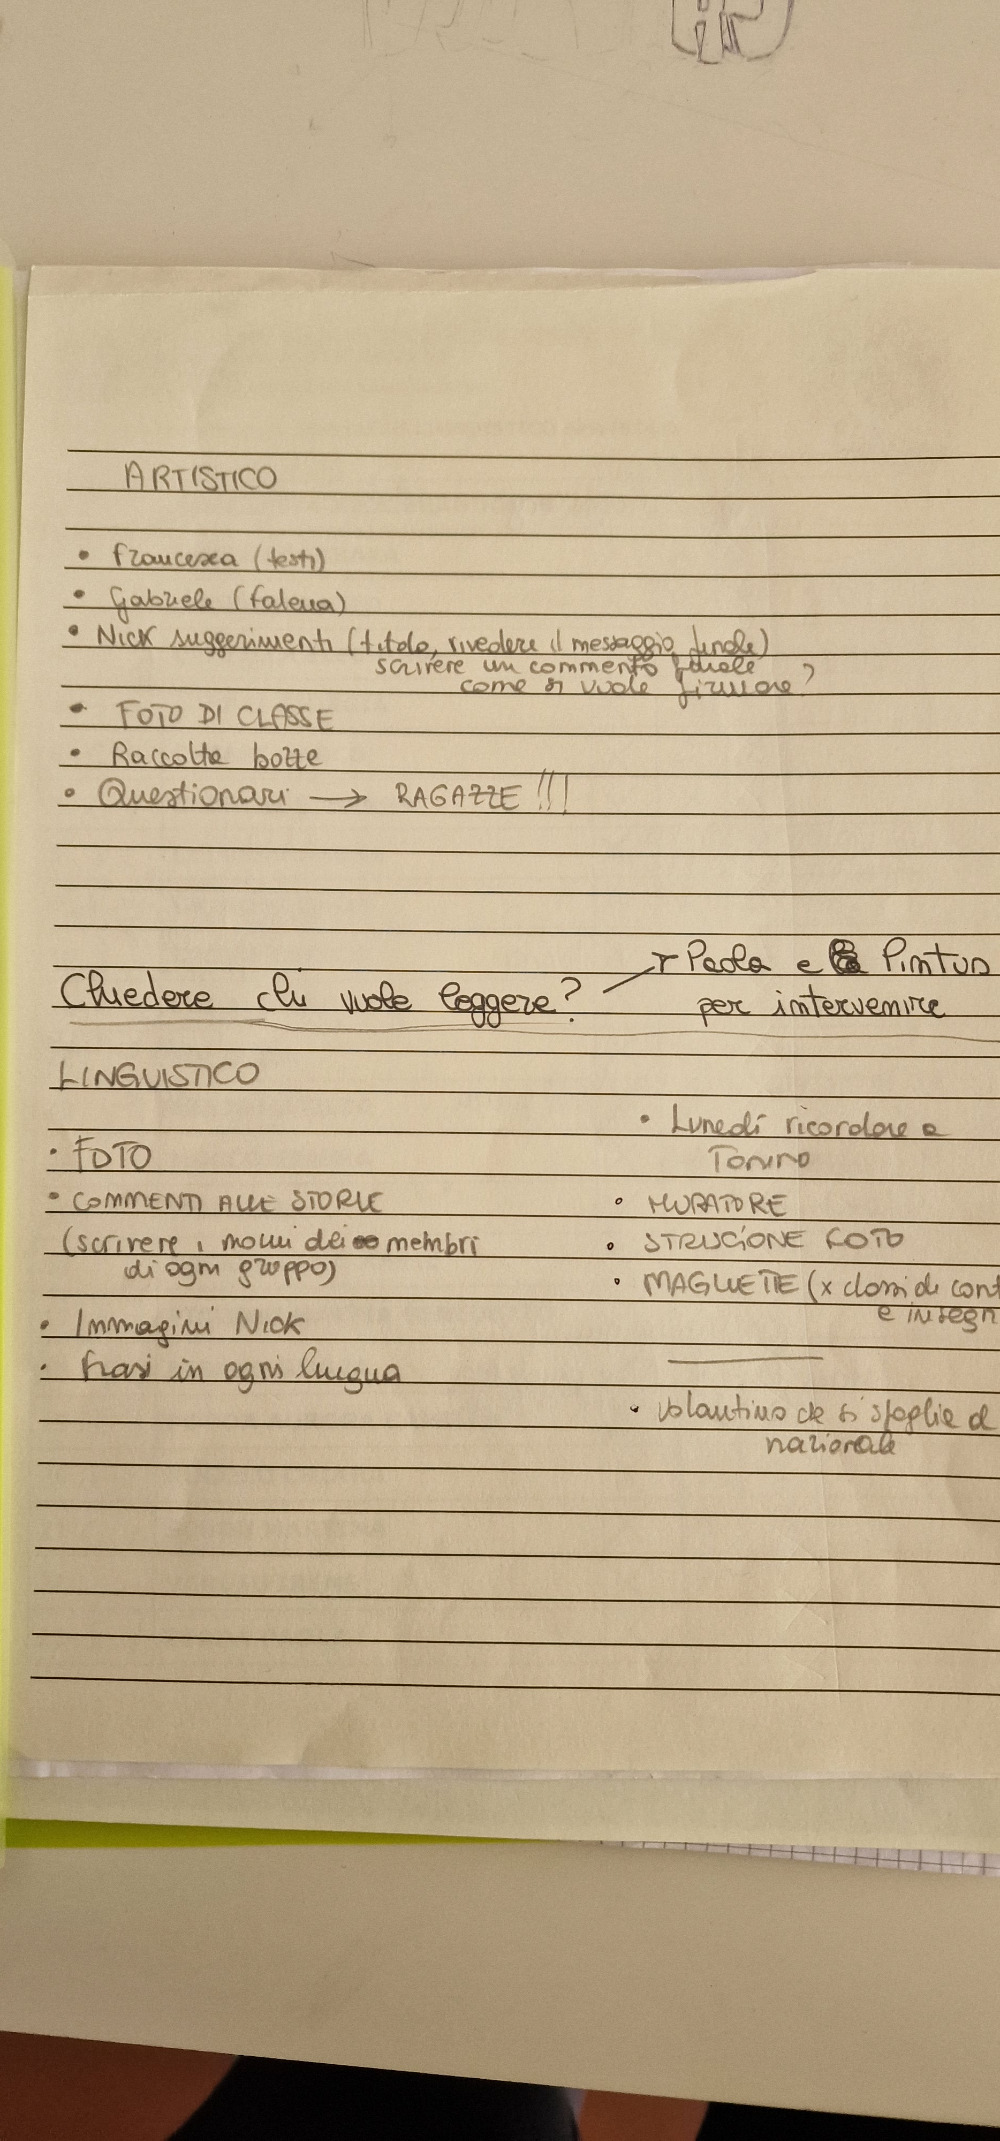 ARTISTICO
• Francesca (testi)
• Gabriele (falena)
• Nick suggerimenti (titolo, rivedere il messaggio finale)
scrivere un commento finale
come si vuole firmare?
• FOTO DI CLASSE
• Raccolta bozze
• Questionari → RAGAZZE !!!
Chiedere chi vuole leggere? → Paola e Pintus
per intervenire
LINGUISTICO
• FOTO
• COMMENTI ALLE STORIE
(scrivere i nomi dei membri
di ogni gruppo)
• Immagini Nick
• frasi in ogni lingua
• Lunedì ricordare a
Tonino
• MURATORE
• STRISCIONE FOTO
• MAGLIETTE (x classi di cont
e insegn
• volantino che si sfoglia
nazionale